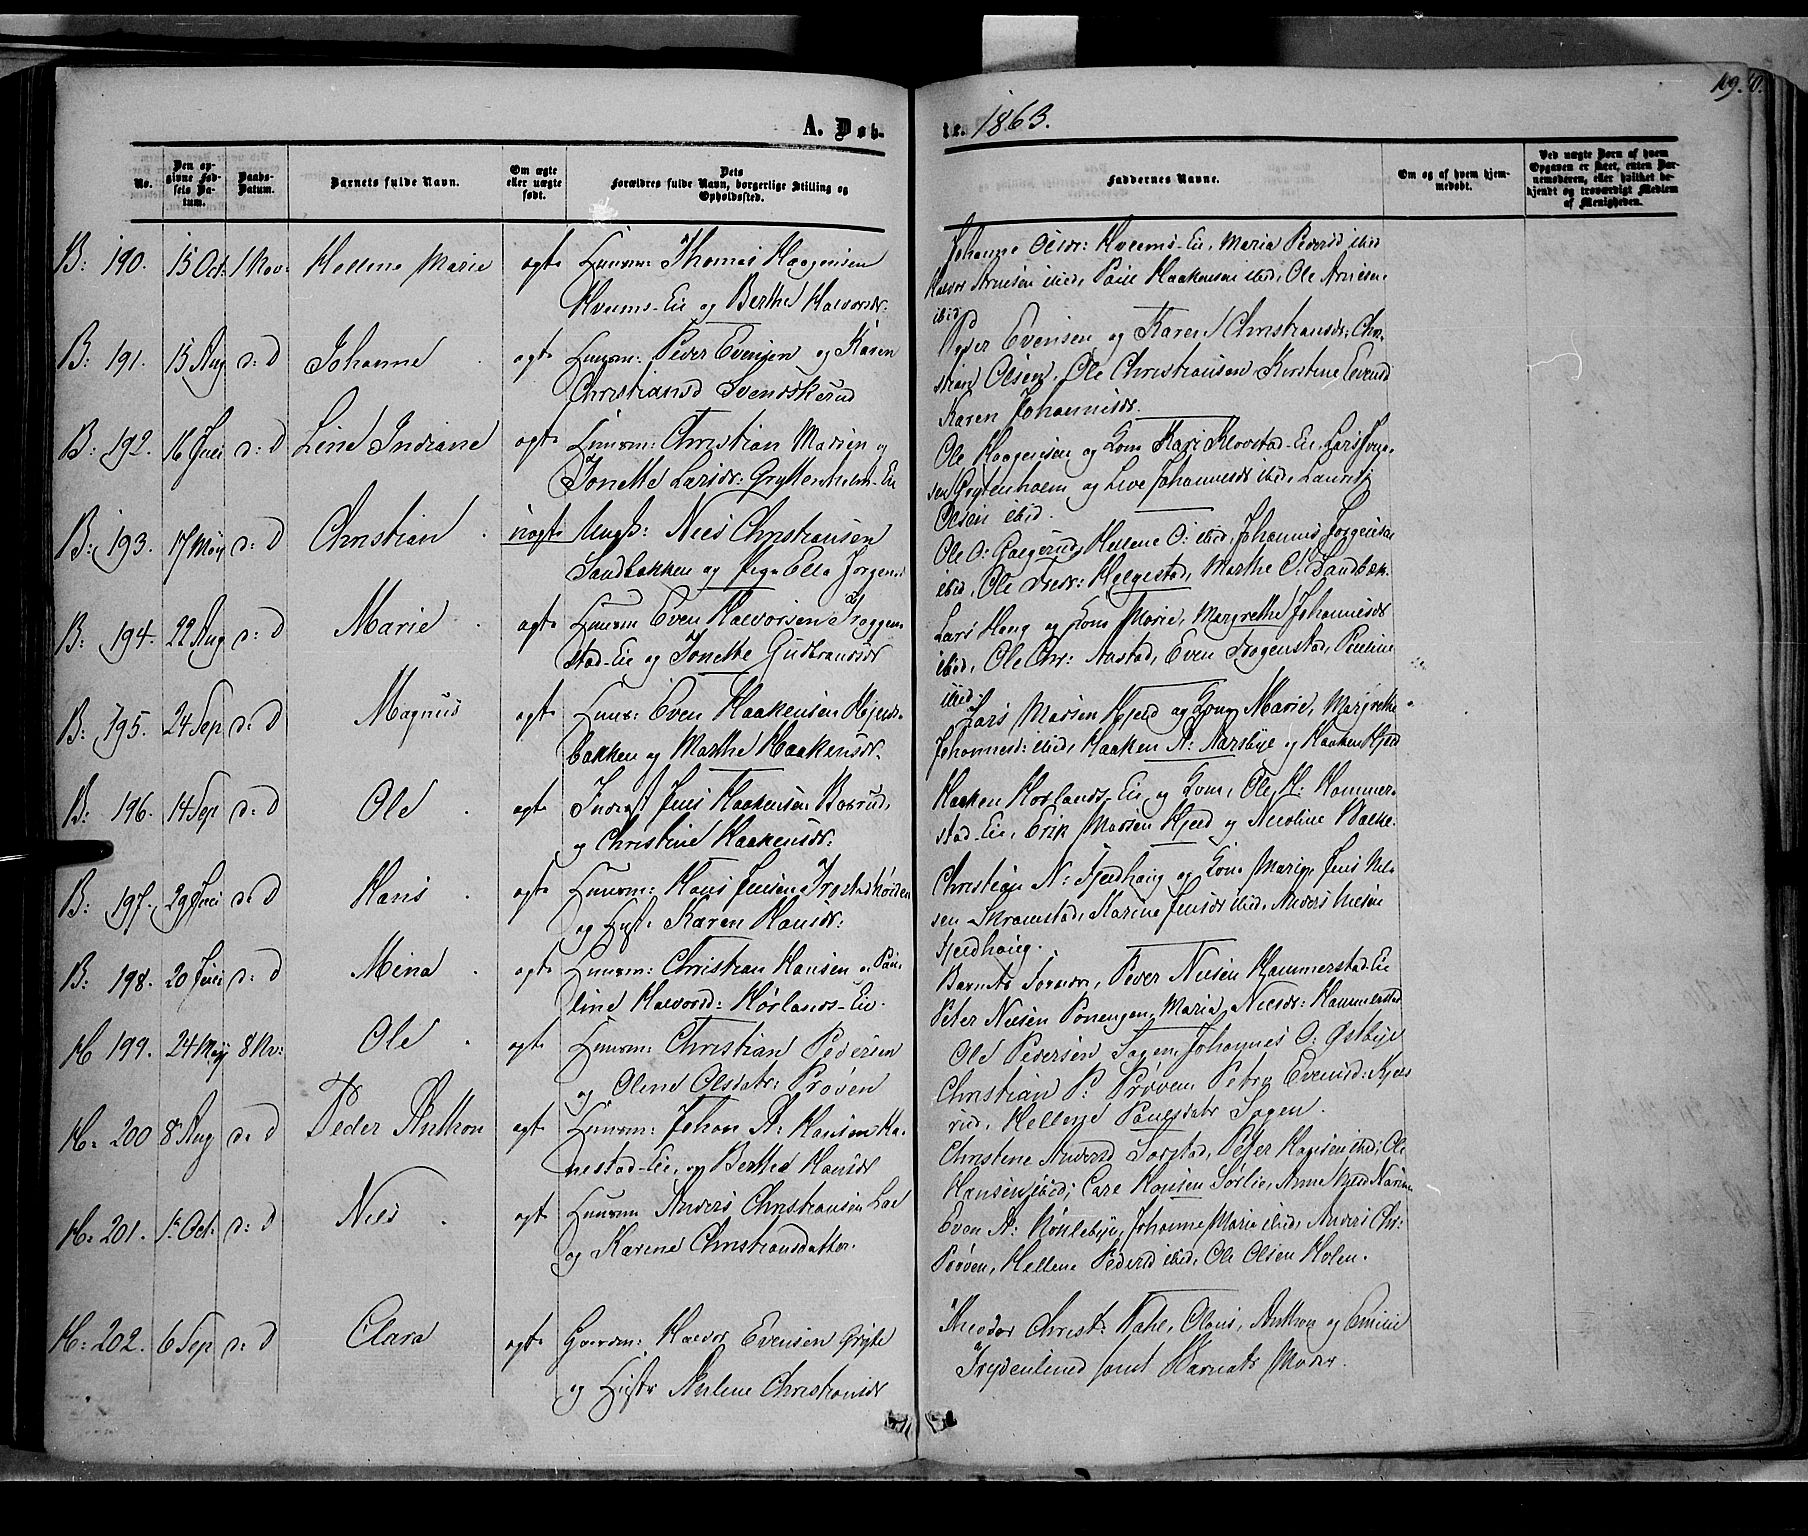 A. Døb-
te. 1863.
119.
No.
Den op-
givne Fød-
sels Da-
tum.
Daabs-
Datum.
Barnets fulde Navn.
Om ægte
eller uægte
født.
Dets
Forældres fulde Navn, borgerlige Stilling og
Opholdssted.
Faddernes Navne.
Om og af hvem hjem-
medøbt.
Ved uægte Børn af hvem
Opgaven er skeet, enten Bar-
nemoderen, eller hvilket be-
kjendt og troværdigt Medlem
af Menigheden.
B: 190. 15 Oct. 1 Nov: Hellene Marie ægte Huusm: Thomas Haagensen
Hveems-Eie og Berthe Halvorsdr.
Johanne Olsdr: Hveems-Eie, Maria Pedersd ibid
Halvor Arnesen ibid, Poul Haakensen ibid, Ole Arnesen
ibid
B: 191. 15 Aug d: D Johanne ægte Huusm: Peder Evensen og Karen
Christiansd Svendskerud
Peder Evensen og Karen Christiansdr, Chri-
stian Olsen, Ole Christiansen Kirstine Evensd
Karen Johannesdr.
B: 192. 16 Juli d: D Line Indiane ægte Huusm: Christian Madsen og
Jonette Larsdr: Gryttenholm-Eie
Ole Haagensen og Kone Kari Klovstad-Eie, Lars
sen Grytenholm og Live Johannesdr ibid, Lauritz
Olsen ibid.
B: 193. 17 May d: D Christian uægte Ungk: Niels Christiansen
Sandbakken og Pige Ella Jørgens
Ole O: Hellene O: ibid, Johannes Jørgensen
ibid, Ole Helgestad, Marthe O: Sandbæk
B: 194. 22 Aug d: D Marie ægte Huusm Even Halvorsen Froggen-
stad-Eie og Jonette Gudbrandsdr
Lars Haug og Kone Marie, Margrethe Johannesdr
ibid, Ole Chr: Aastad, Even Pauline
ibid.
B: 195. 24 Sep d: D Magnus ægte Huusm: Even Haakensen
bakken og Marthe Haakensdr.
Lars Madsen Hjeld og Kone Marie, Margrethe
Johannesd: ibid, Haaken A: Aarsbye og Haaken Hjeld
B: 196. 14 Sep d: D Ole ægte Inderst Jens Haakensen Borrud,
og Christine Haakensdr:
Haaken Horlands-Eie og Kone, Ole H: Hammer-
stad-Eie, Erik Madsen Hjeld og Nicoline Balke.
B: 197. 29 Juli d: D Hans ægte Huusm: Hans Jensen
og Hust: Karen Hansdr:
Christian N: Fjeldhaug og Kone Marie, Jens Niel-
sen Skramstad, Karine Jensdr ibid, Anders Nielsen
Fjeldhaug.
B: 198. 20 Juli d: D Mina ægte Huusm: Christian Hansen og Pau-
line Halvorsd: Horlands-Eie.
Barnets Forældre, Peder Nielsen Hammerstad-Eie
Peter Nielsen Ponengen, Maria Nielsdr: Hammerstad
H 199. 24 May 8 Nv: Ole ægte Huusm: Christian Pedersen
og Oline Olsdatr: Prøven
Ole Pedersen Sagen, Johannes O: Østbye
Christian P: Prøven, Petra Evensd:
rud, Hellene Paulsdatr Sagen.
H: 200 8 Aug d: D Peder Anthon ægte Huusm: Johan A: Hansen Ha-
nestad-Eie, og Berthe Hansdr
Christene Andersd Sorstad, Peter Hansen ibid, Ole
Hansen ibid, Carl Hansen Sørlie, Anne
H: 201. 1 Oct. d: D Niels ægte Huusm Anders Christiansen Lae
og Karine Christiansdatter.
Even A: Johanne Marie ibid, Anders Chr:
Prøven, Hellene Pedersd ibid, Ole Olsen Holen.
H: 202. 6 Sep d: D Clara ægte Gaardm: Halvor Evensen Gryte
og Hustr Aulene Christiansdr
Theodor Christ: Dahl, Olaus, Anthon og Emilie
samt Barnets Moder.